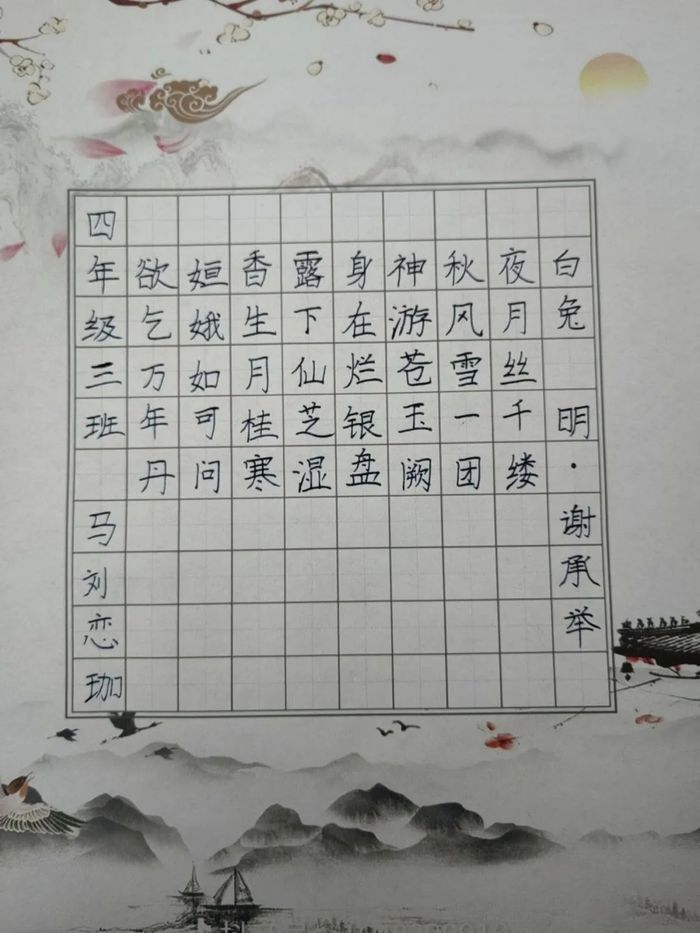 白兔 明·谢承举
夜月丝千缕
秋风雪一团
神游苍玉阙
身在烂银盘
露下仙芝湿
香生月桂寒
姮娥如可问
欲乞万年丹
四年级三班 马刘恋珈